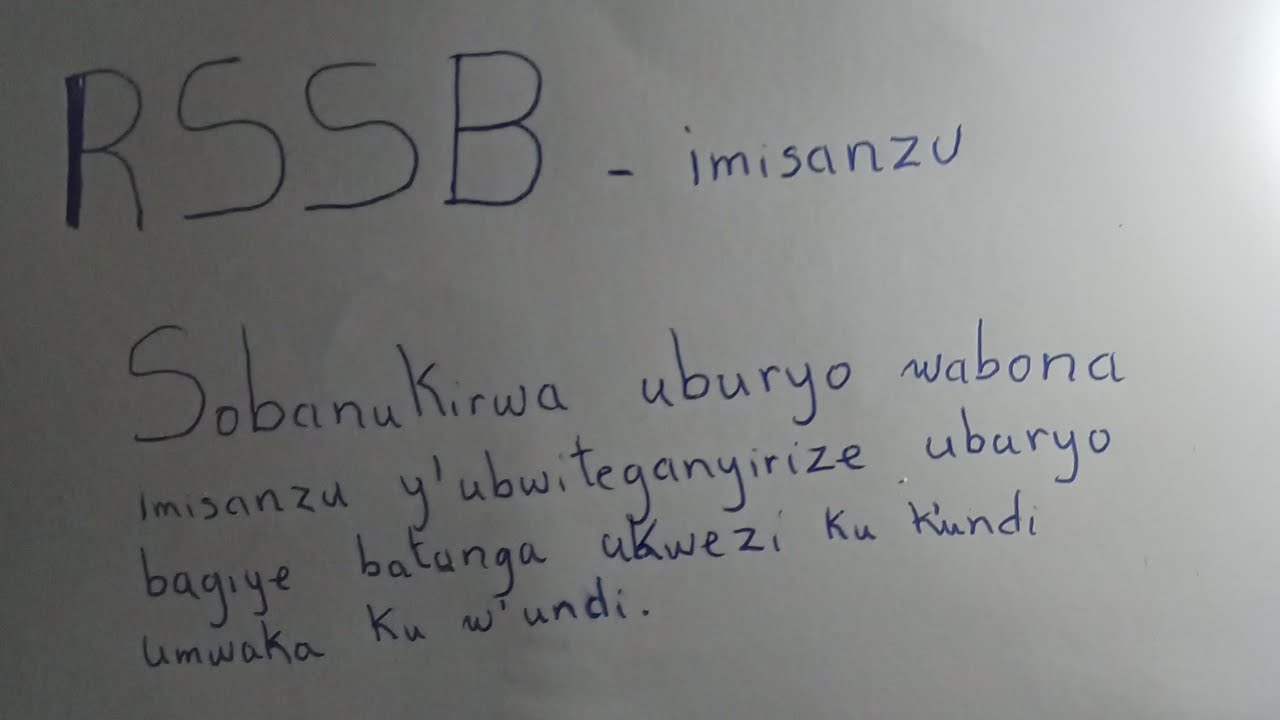 RSSB - imisanzu
Sobanukirwa uburyo wabona
imisanzu y'ubwiteganyirize uburyo
bagiye batanga ukwezi ku k'undi
umwaka ku w'undi.